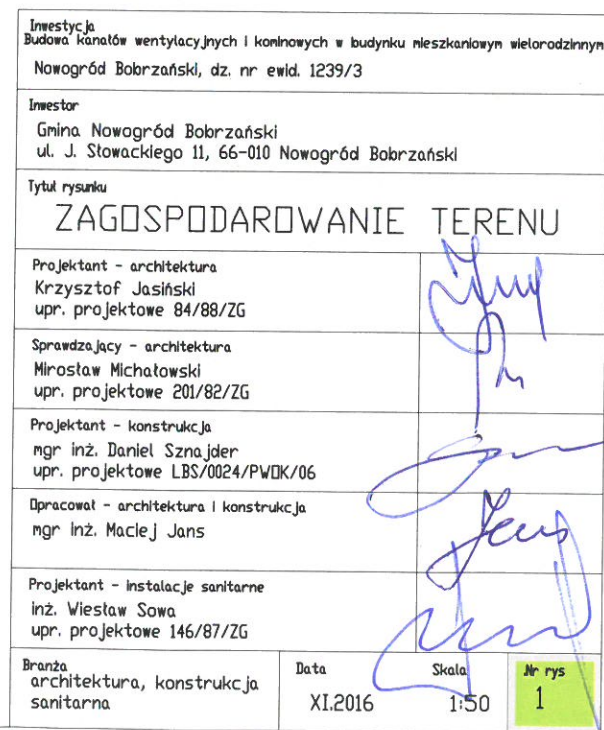 Inwestycja
Budowa kanałów wentylacyjnych i kominowych w budynku mieszkaniowym wielorodzinnym
Nowogród Bobrzański, dz. nr ewid. 1239/3
Inwestor
Gmina Nowogród Bobrzański
ul. J. Słowackiego 11, 66-010 Nowogród Bobrzański
Tytuł rysunku
ZAGOSPODAROWANIE TERENU
Projektant - architektura
Krzysztof Jasiński
upr. projektowe 84/88/ZG
Sprawdzający - architektura
Mirosław Michałowski
upr. projektowe 201/82/ZG
Projektant - konstrukcja
mgr inż. Daniel Sznajder
upr. projektowe LBS/0024/PWOK/06
Opracował - architektura i konstrukcja
mgr inż. Maciej Jans
Projektant - instalacje sanitarne
inż. Wiesław Sowa
upr. projektowe 146/87/ZG
Branża
architektura, konstrukcja
sanitarna
Data
XI.2016
Skala
1:50
Nr rys
1